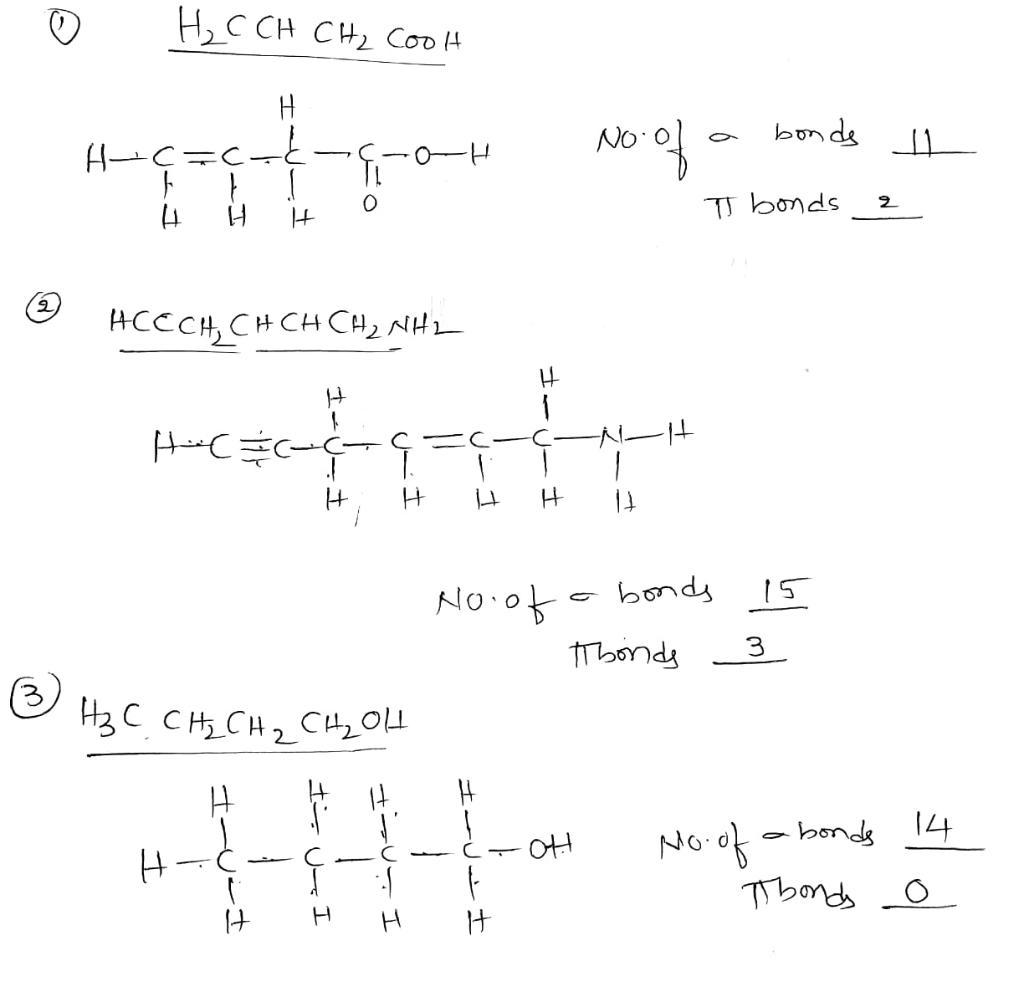 ① H₂C CH CH₂ COOH
H
H—C=C—C—C—O—H
H H H O
No. of σ bonds 11
π bonds 2
② HCCCH₂ CH CH CH₂ NH₂
H H
H—C≡C—C—C=C—C—N—H
H H H H H
No. of σ bonds 15
π bonds 3
③ H₃C CH₂ CH₂ CH₂ OH
H H H H
H—C—C—C—C—OH
H H H H
No. of σ bonds 14
π bonds 0